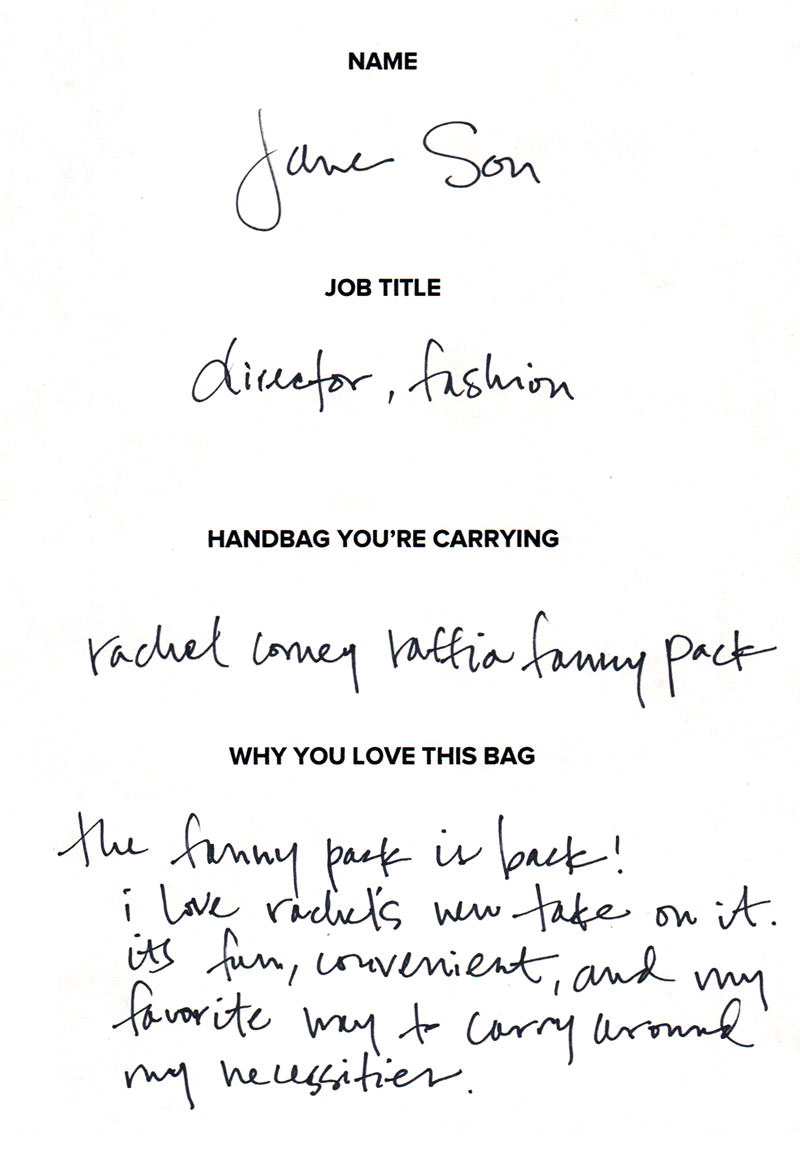 NAME
Jane Son
JOB TITLE
director, fashion
HANDBAG YOU'RE CARRYING
rachel comey raffia fanny pack
WHY YOU LOVE THIS BAG
the fanny pack is back!
i love rachel's new take on it.
its fun, convenient, and my
favorite way to carry around
my necessities.